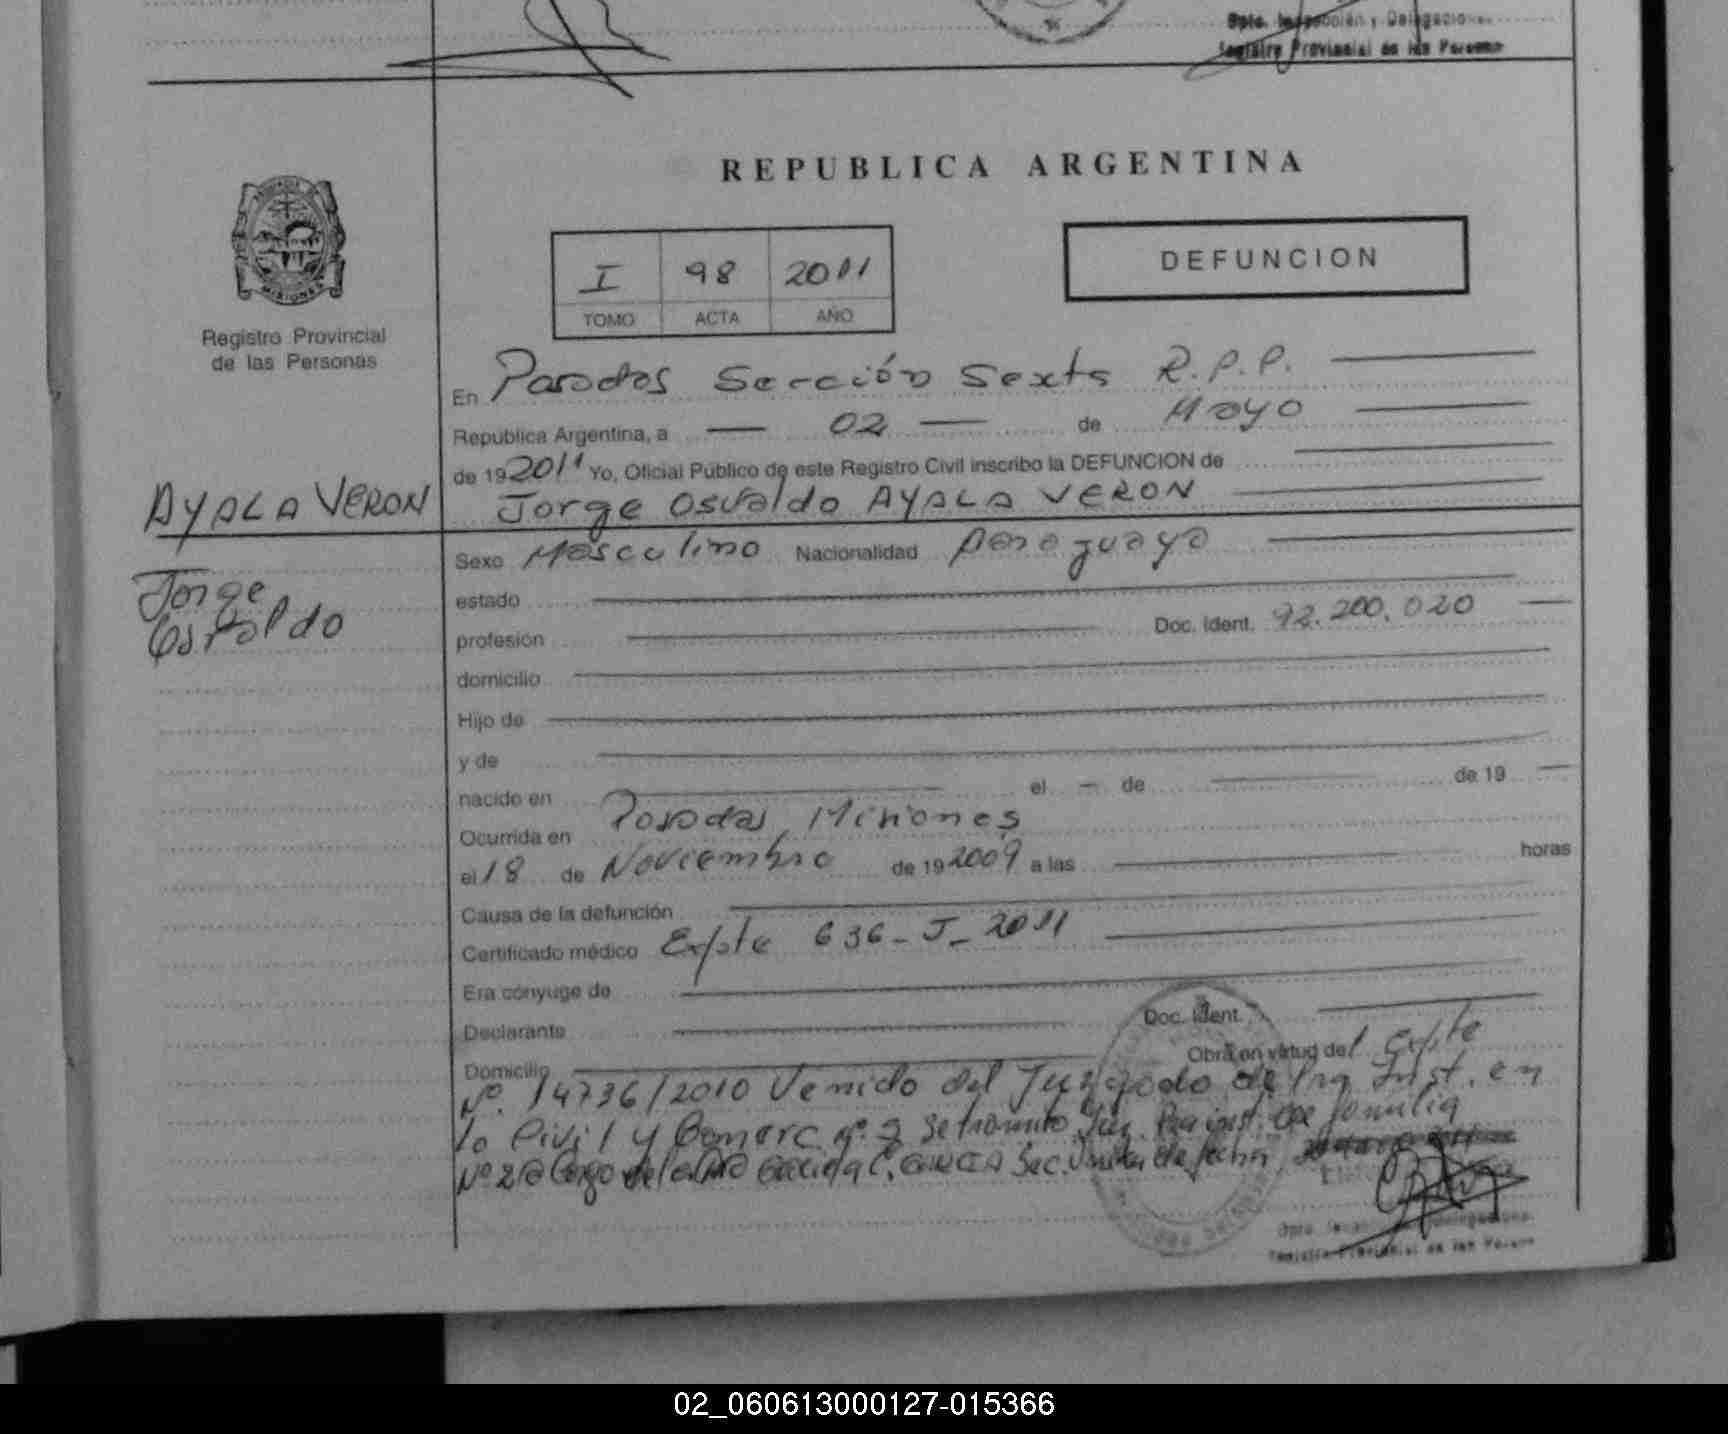 Dpto. Inspección y Delegacione
Registro Provincial de las Persona
REPUBLICA ARGENTINA
MISIONES
Registro Provincial
de las Personas
I 98 2011
TOMO ACTA AÑO
DEFUNCION
En Posadas Sección Sexta R.P.P.
República Argentina, a 02 de Mayo
de 19 2011 Yo, Oficial Público de este Registro Civil inscribo la DEFUNCION de
AYALA VERON
Jorge Osvaldo AYALA VERON
Jorge
Osvaldo
Sexo Masculino Nacionalidad Paraguaya
estado
profesión Doc. Ident. 92.200.020
domicilio
Hijo de
y de
nacido en el de de 19
Ocurrida en Posadas, Misiones
el 18 de Noviembre de 19 2009 a las horas
Causa de la defunción
Certificado médico Expte 636-J-2011
Era cónyuge de
Declarante Doc. Ident.
Domicilio Obra en virtud del Expte
Nº. 14736/2010 Venido del Juzgado de Pra Inst. en
lo Civil y Comerc nº. 2 Se tramito Juz. Pra inst. de familia
Nº 2 a cargo de la Sec. Unica de fecha
Registro Provincial de las Person
02_060613000127-015366